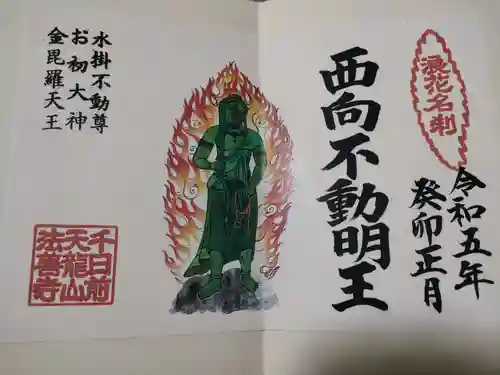 浪花名刹
令和五年
癸卯正月
西向不動明王
水掛不動尊
お初大神
金毘羅天王
千日前
天龍山
法善寺